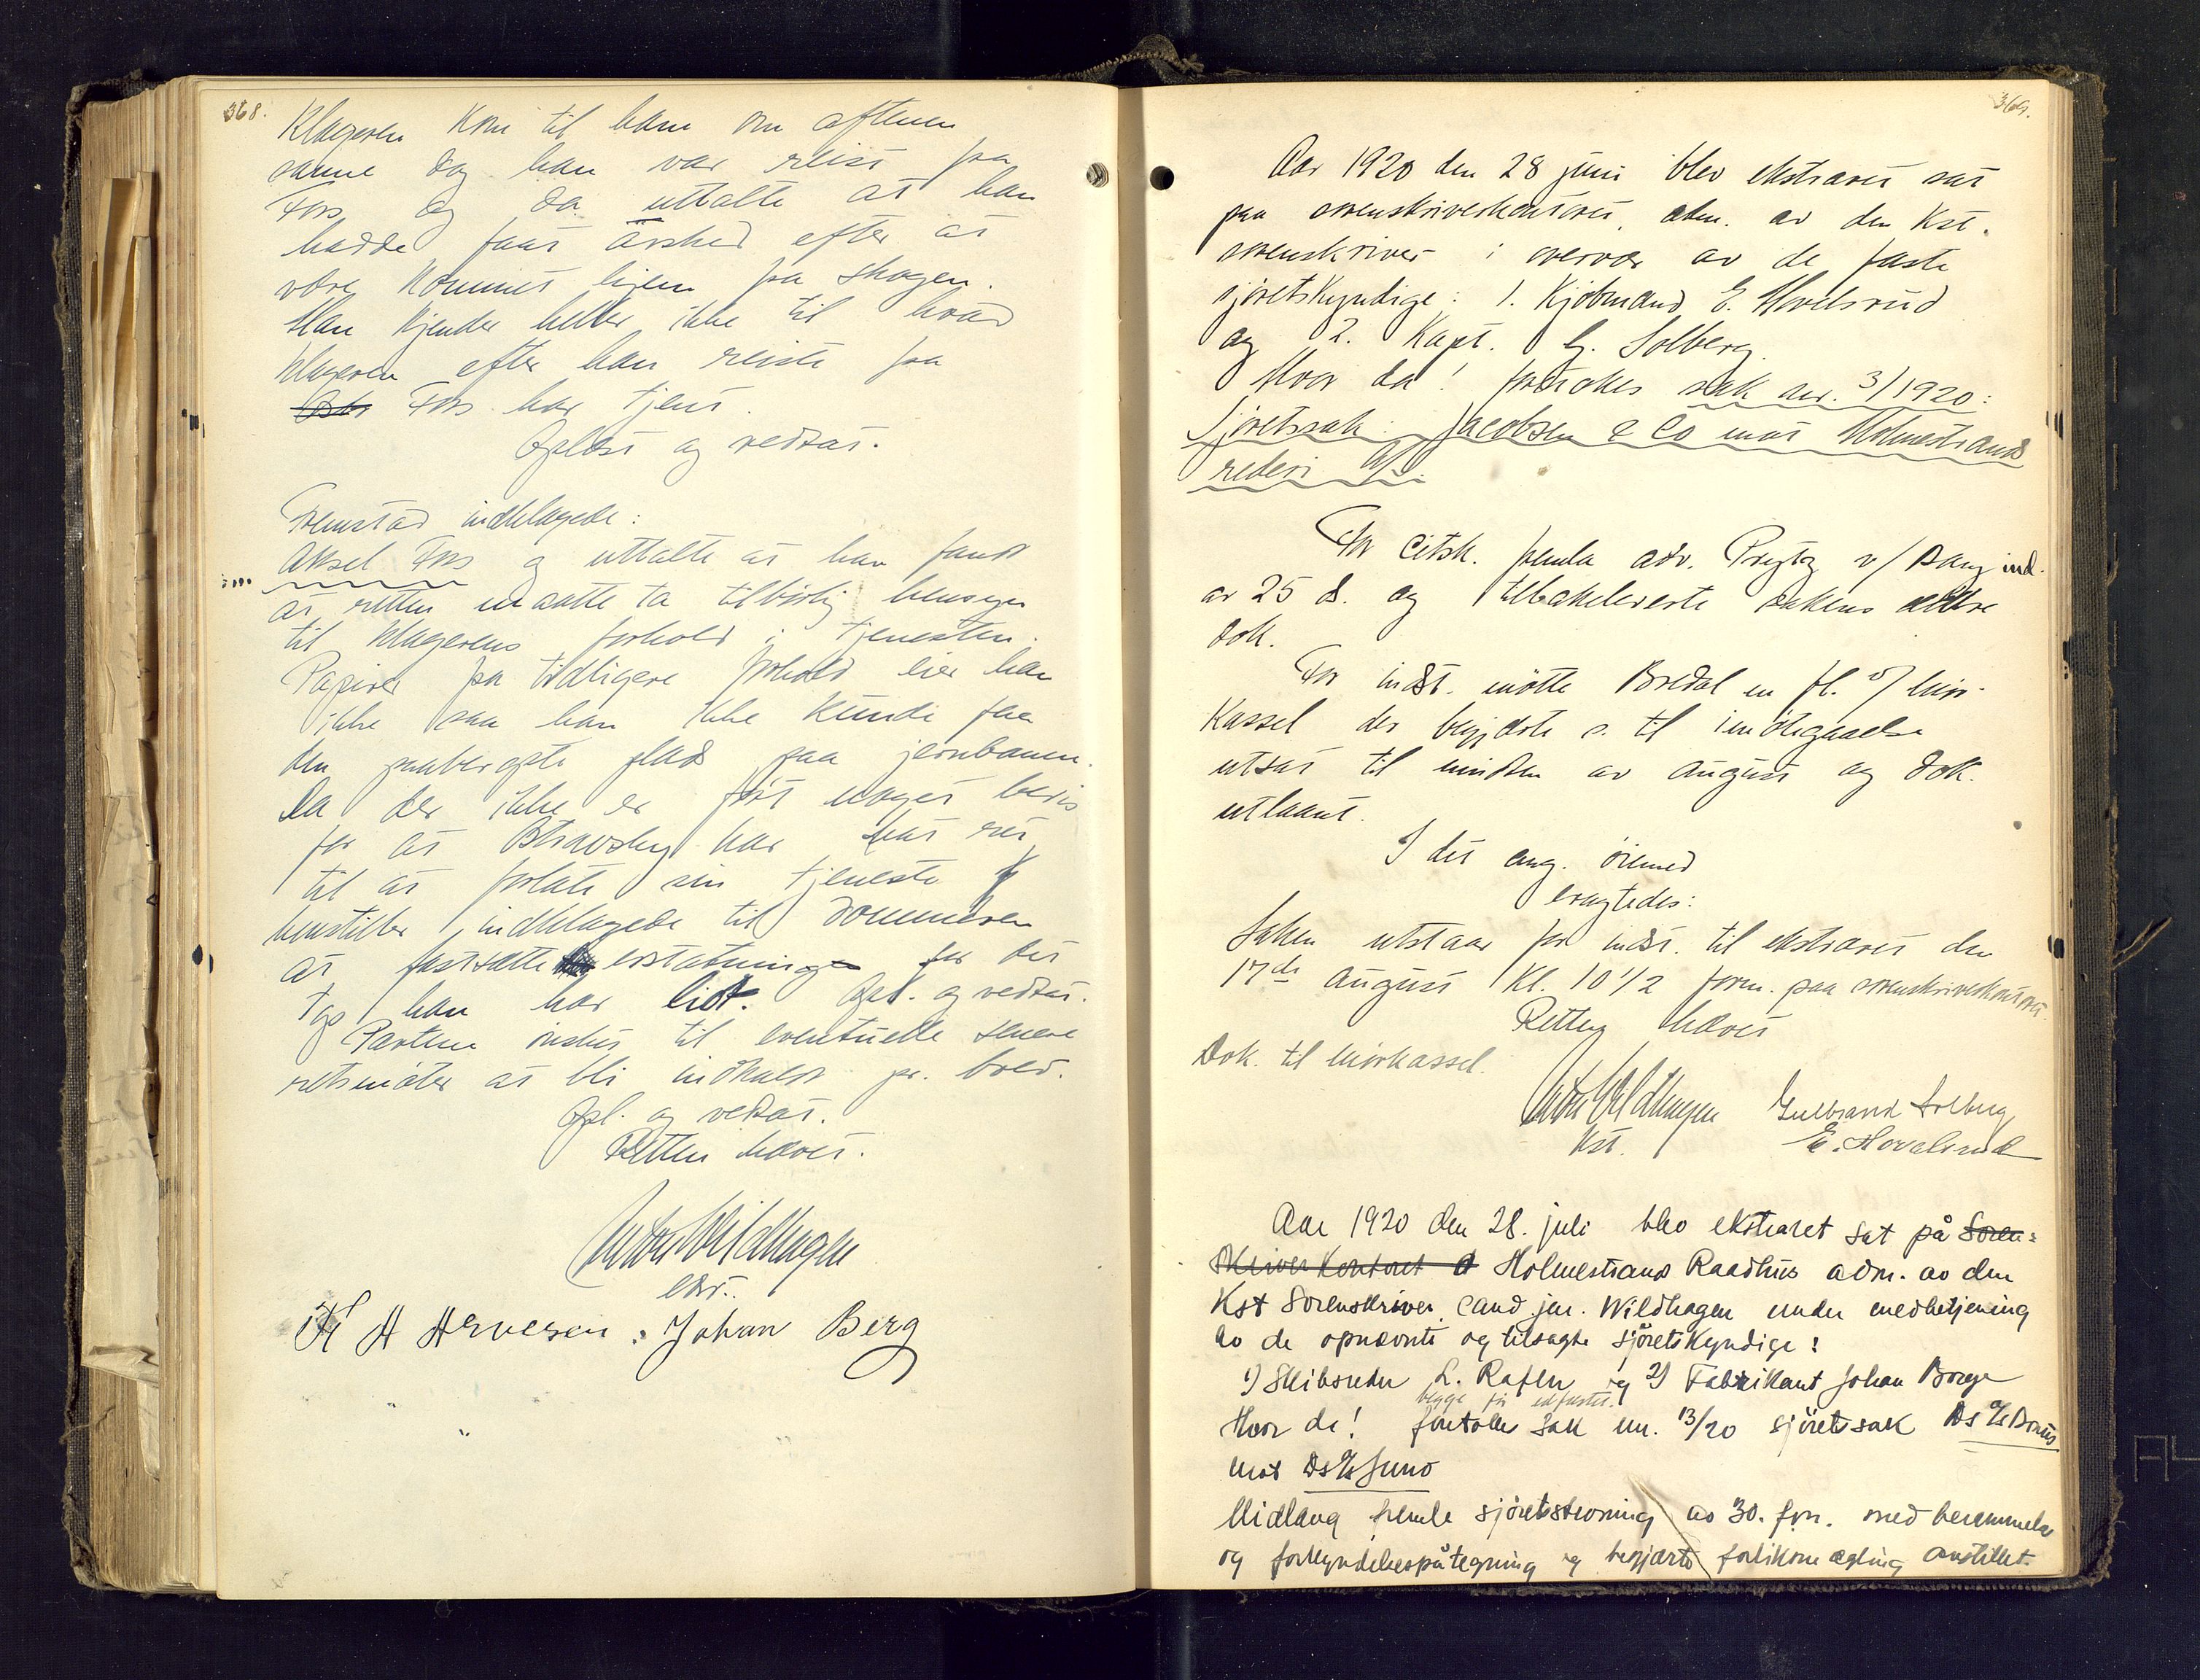 368.
Klageren kom til ham om aftenen
samme dag han var reist fra
Fors og da uttalte at han
hadde faat avsked efter at
være kommet hjem fra skogen.
Han kjender heller ikke til hvad
klageren efter han reiste fra
Fors har tjent.
Oplæst og vedtat.
Fremstod indklagede:
Aksel Fors og uttalte at han fandt
at retten maatte ta tilbørlig hensyn
til klagerens forhold i tjenesten.
Papirer fra tidligere forhold eier han
ikke saa han ikke kunde faa
den paaberopte plads paa jernbanen.
Da der ikke er ført noget bevis
for at har hat ret
til at forlate sin tjeneste
henstiller indklagede til dommeren
at fastsætte erstatningen for det
tap han har lidt. Opl. og vedtat.
Parterne inden til eventuelle senere
retsmøter at bli indkaldt pr. brev.
Opl. og vedtat.
Retten hævet.
Anton Wildhagen
kst.
K A Arvesen : Johan Berg
369.
Aar 1920 den 28 juni blev ekstraret sat
paa sorenskriverkontoret, adm. av den kst.
sorenskriver i overvær av de faste
sjøretskyndige: 1. Kjøbmand E. Hovelsrud
og 2. Kapt. G. Solberg.
Hvor da! foretokes sak nr. 3/1920:
Sjøretssak: Jacobsen & Co mot Holmestrands
rederi A/S.
For citsk. fremla adv. Prytz v/ Bang ind.
av 25 ds. og tilbakeleverte sakens ældre
dok.
For indst. møtte Bredal en fl. v/ Mør-
kassel der begjærte s. til imøtegaaelse
utsat til midten av august og dok.
utlaant.
I det ang. øiemed
eragtedes:
Saken utstaar for indst. til ekstraret den
17de august kl. 10 1/2 form. paa sorenskriverkontoret.
Retten hævet
Dok. til Mørkassel.
Anton Wildhagen Gulbrand Solberg
kst. E. Hovelsrud
Aar 1920 den 28. juli blev ekstraret sat på Soren=
skriverkontoret Holmestrand Raadhus adm. av den
Kst Sorenskriver cand. jur. Wildhagen under medbetjening
av de opnævnte og tilsagte sjøretskyndige:
1) Skibsreder L. Rafen og 2) Fabrikant Johan Borge
begge før edfæstet.
Hvor da! foretokes Sak nr. 13/20 sjøretssak Ds A/s
mot Ds A/s Juno
Midlang fremla sjøretsstevning av 30. f.m. med berammelse
og forkyndelsespåtegning og begjærte forliksmægling anstillet.